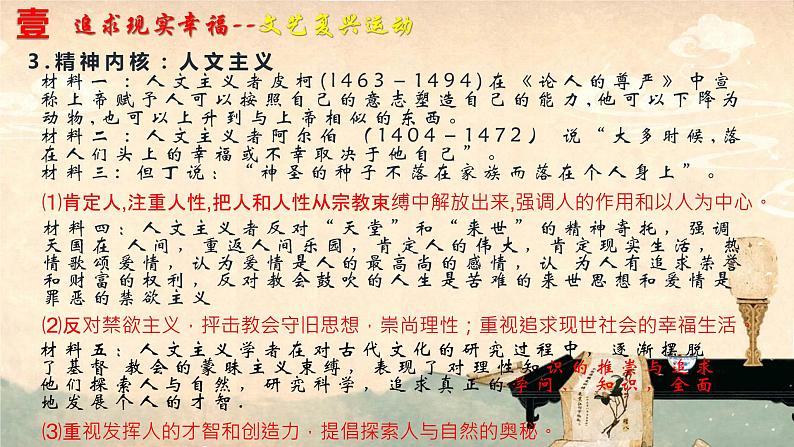 壹 追求现实幸福--文艺复兴运动
3.精神内核：人文主义
材料一：人文主义者皮柯(1463－1494)在《论人的尊严》中宣
称上帝赋予人可以按照自己的意志塑造自己的能力,他可以下降为
动物,也可以上升到与上帝相似的东西。
材料二：人文主义者阿尔伯（1404－1472）说“大多时候,落
在人们头上的幸福或不幸取决于他自己”。
材料三:但丁说：“神圣的种子不落在家族而落在个人身上”。
⑴肯定人,注重人性,把人和人性从宗教束缚中解放出来,强调人的作用和以人为中心。
材料四：人文主义者反对“天堂”和“来世”的精神寄托，强调
天国在人间，重返人间乐园，肯定人的伟大，肯定现实生活，热
情歌颂爱情，认为爱情是人的最高尚的感情，认为人有追求荣誉
和财富的权利，反对教会鼓吹的人生是苦难的来世思想和爱情是
罪恶的禁欲主义
⑵反对禁欲主义，抨击教会守旧思想，崇尚理性；重视追求现世社会的幸福生活
材料五：人文主义学者在对古代文化的研究过程中，逐渐摆脱
了基督教会的蒙昧主义束缚，表现了对理性知识的推崇与追求
他们探索人与自然，研究科学，追求真正的学问、知识，全面
地发展个人的才智.
⑶重视发挥人的才智和创造力，提倡探索人与自然的奥秘。